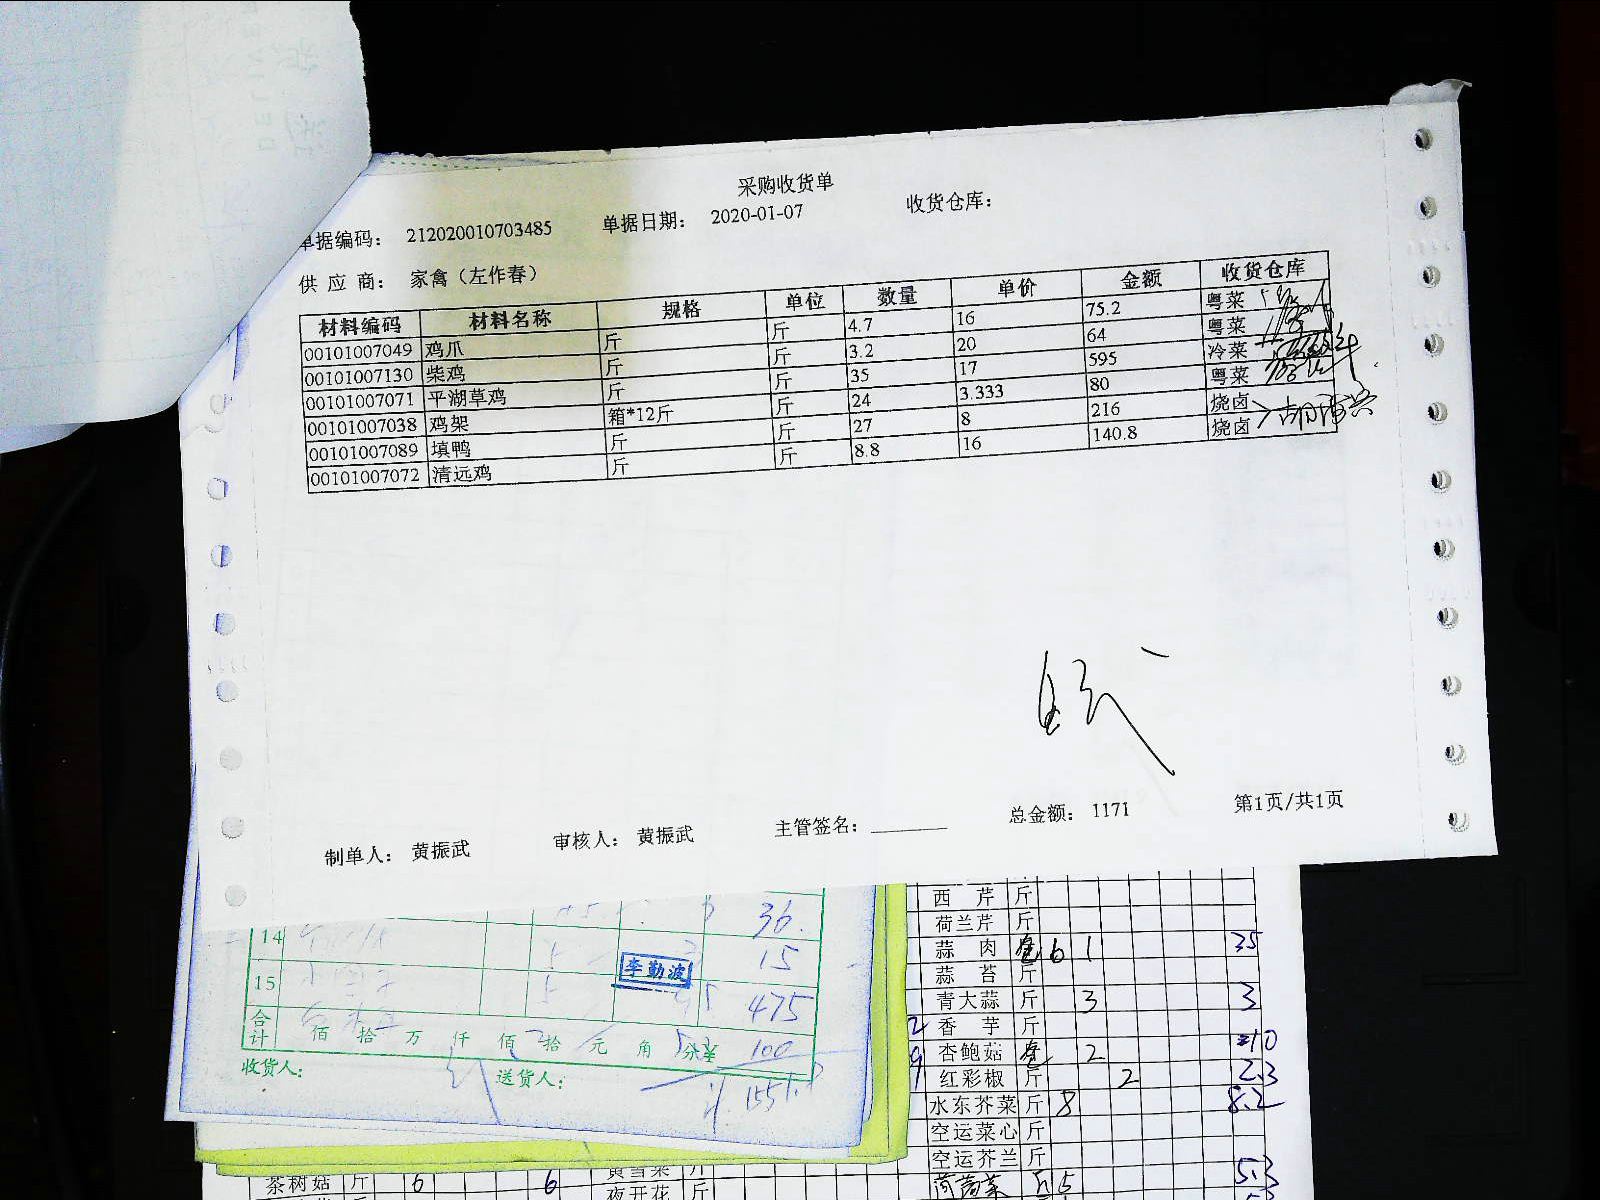 采购收货单
单据编码： 212020010703485 单据日期： 2020-01-07 收货仓库：
供 应 商： 家禽（左作春）
材料编码 材料名称 规格 单位 数量 单价 金额 收货仓库
00101007049 鸡爪 斤 斤 4.7 16 75.2 粤菜
00101007130 柴鸡 斤 斤 3.2 20 64 粤菜
00101007071 平湖草鸡 斤 斤 35 17 595 冷菜
00101007038 鸡架 箱*12斤 斤 24 3.333 80 粤菜
00101007089 填鸭 斤 斤 27 8 216 烧卤
00101007072 清远鸡 斤 斤 8.8 16 140.8 烧卤
制单人： 黄振武 审核人： 黄振武 主管签名： 总金额： 1171 第1页/共1页
36.
14 15
李勤波
15 475
合计 佰 拾 万 仟 佰 拾 元 角 分 100
收货人： 送货人： 1551.
西 芹 斤
荷兰芹 斤
蒜 肉 6 1 35
蒜 苔 斤
青大蒜 斤 3 3
2 香 芋 斤
9 杏鲍菇 2 10
红彩椒 斤 2 2.3
水东芥菜 斤 8 8.2
空运菜心 斤
空运芥兰 斤
茼蒿菜 斤 5 5.3
茶树菇 斤 6 6
夜开花 斤